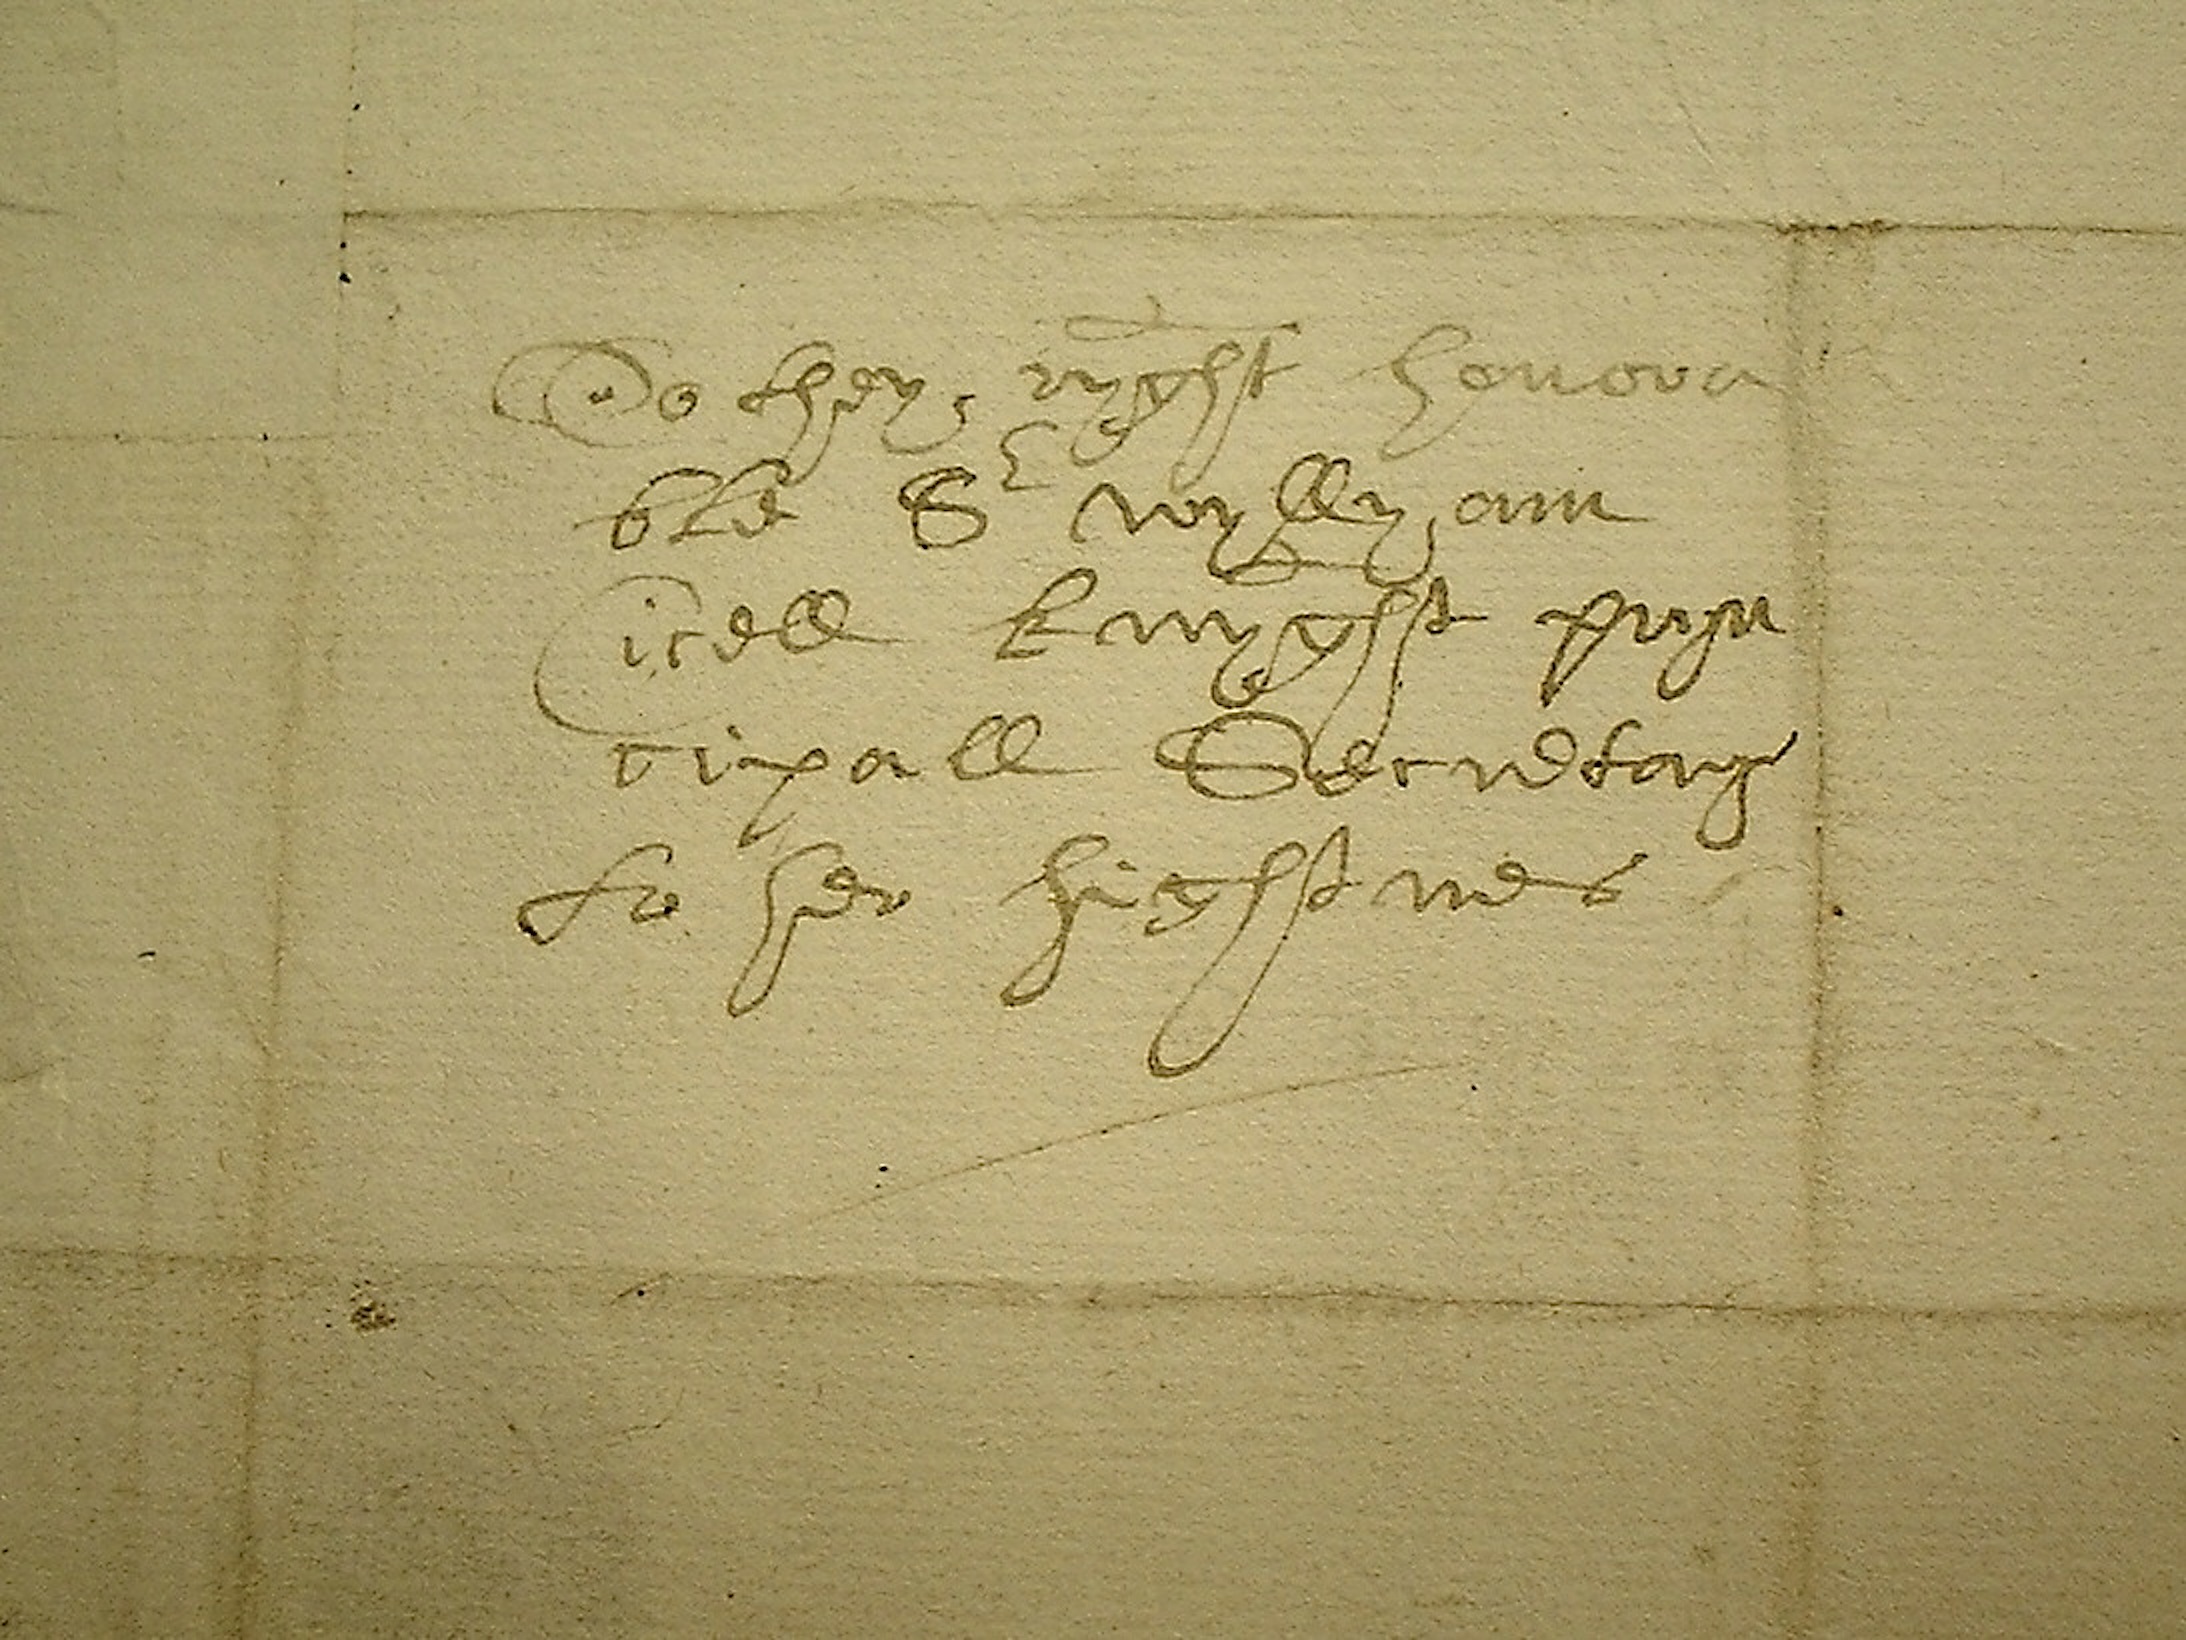 To they ryght honora
ble Sr wylly am
Cicell knyght pryn
cipall Secretary
to her hightnes